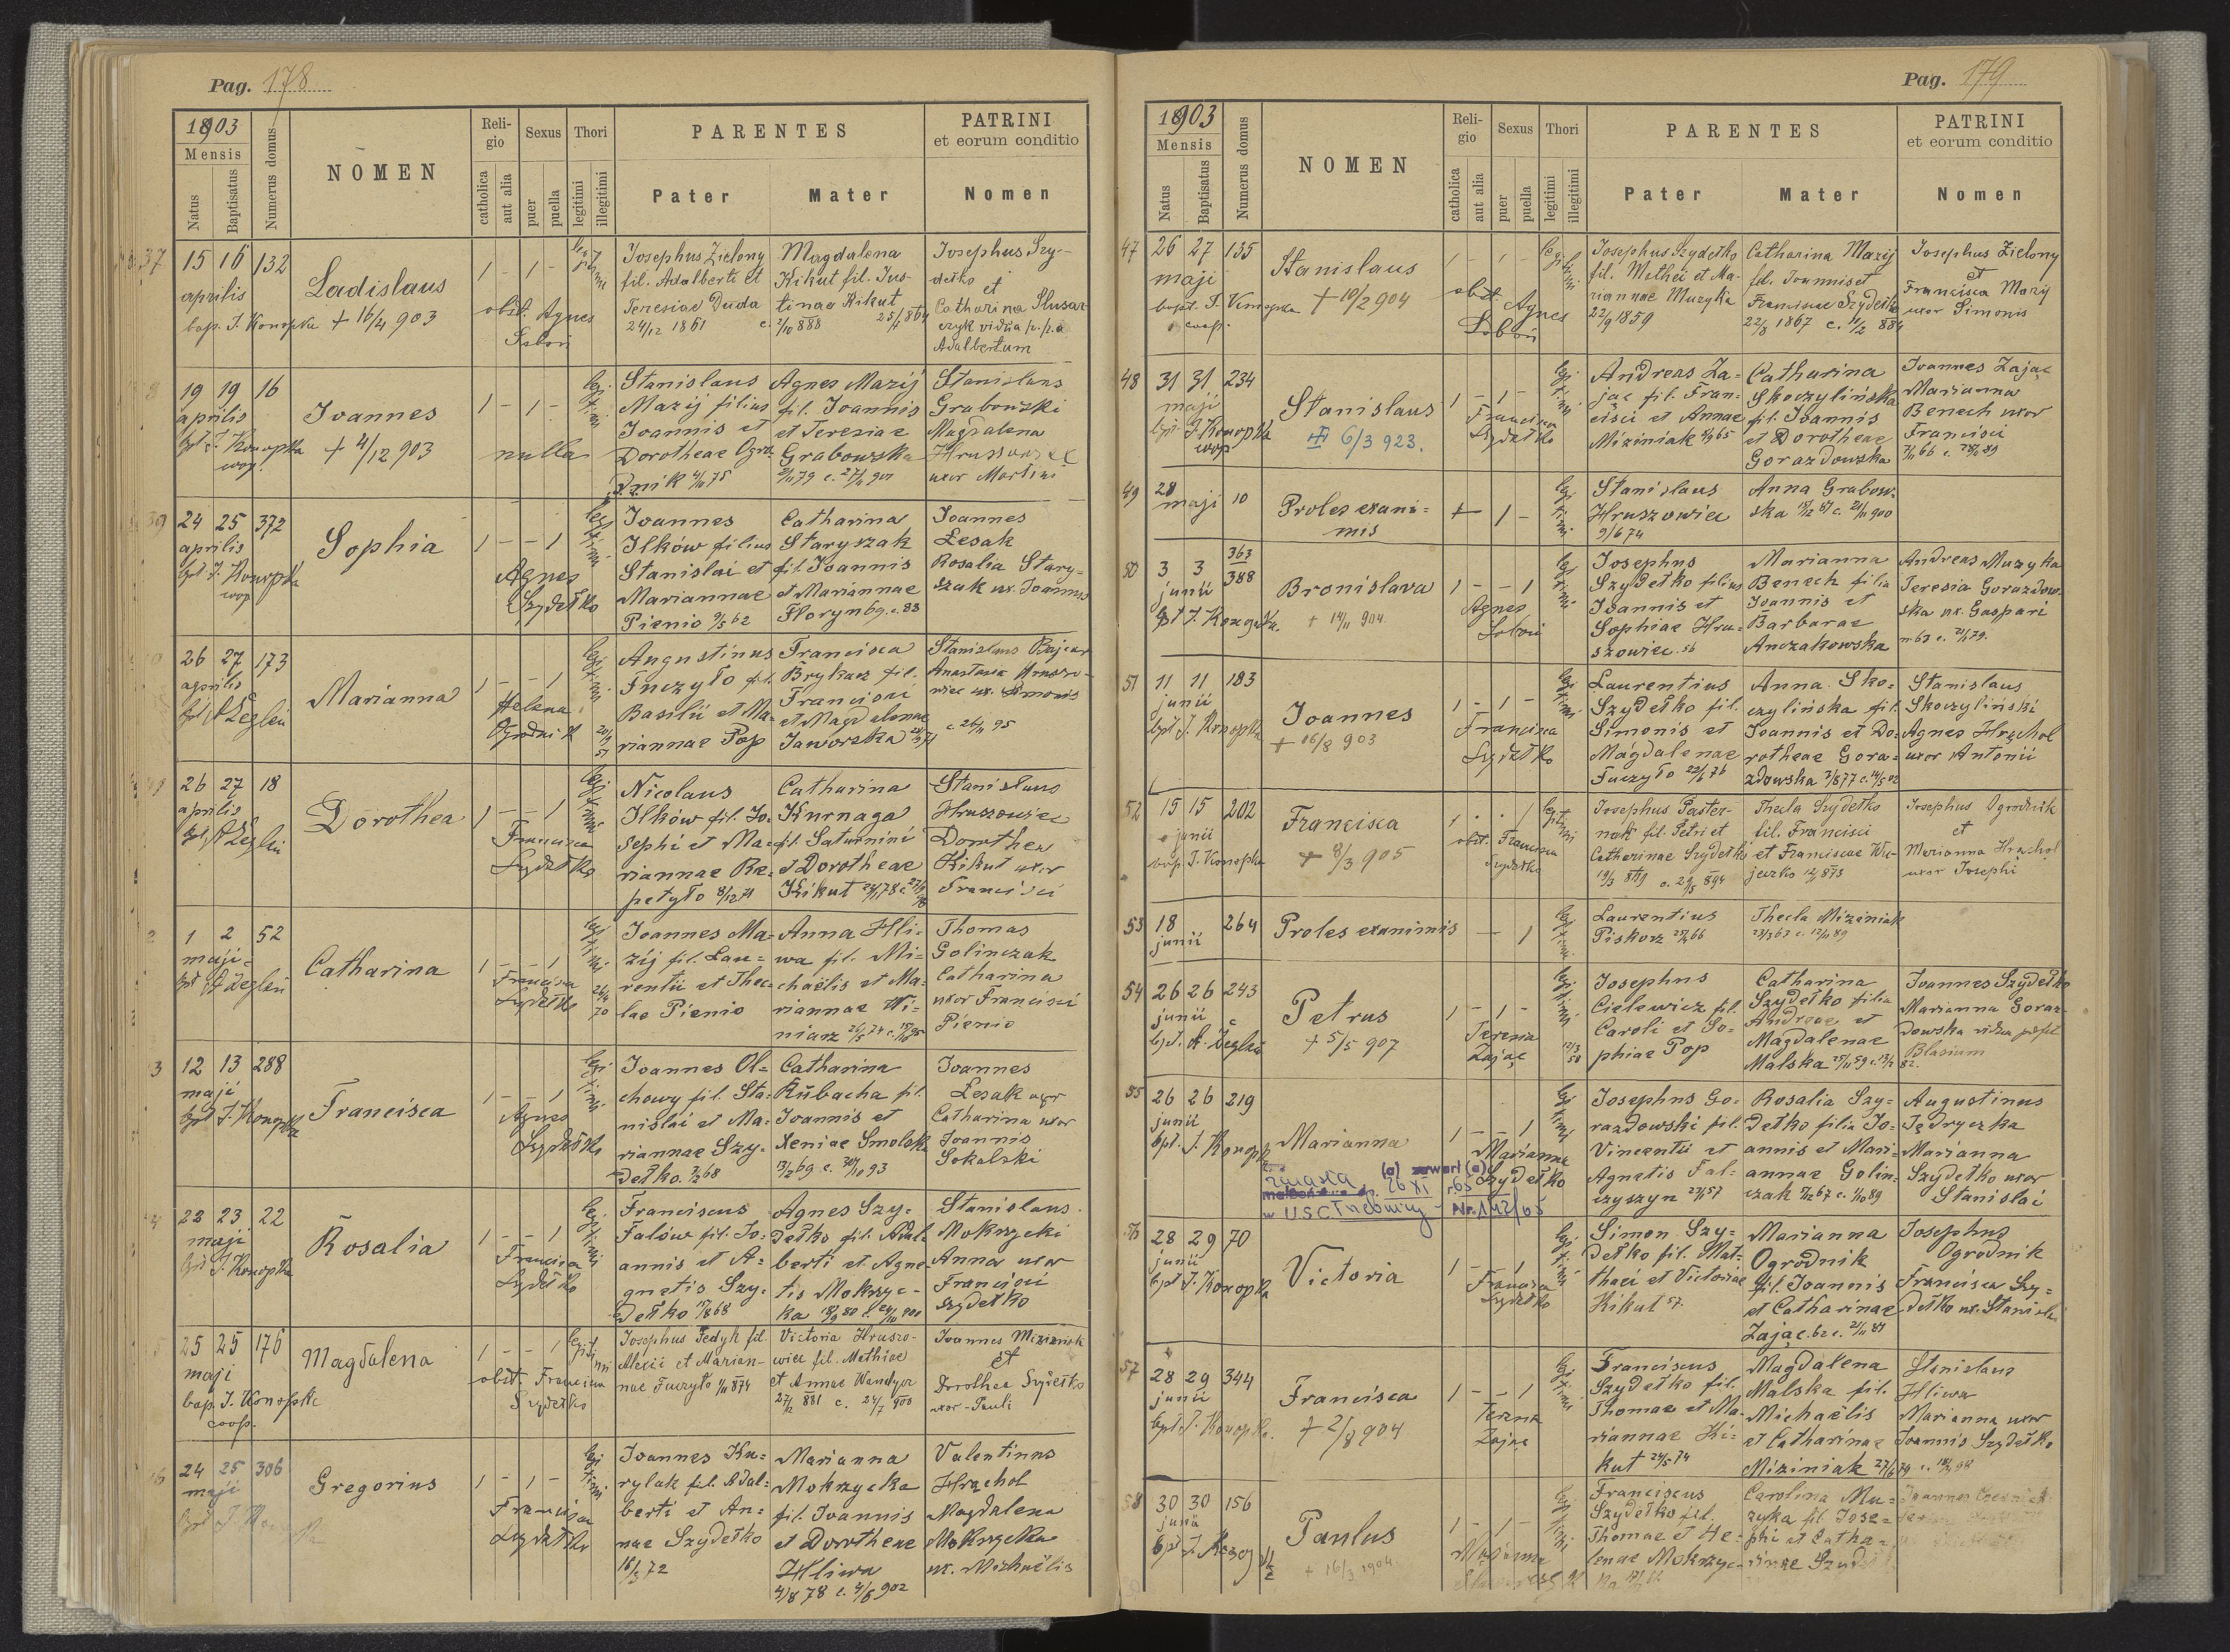 Pag. 178
1903
Mensis
Natus
Baptisatus
Numerus domus
NOMEN
Religio
catholica
aut alia
Sexus
puer
puella
Thori
legitimi
illegitimi
PARENTES
Pater
Mater
PATRINI
et eorum conditio
Nomen
37 15 16 132
aprilis
bap. J. Konopka
Ladislaus
+ 16/4 903
1 - 1 -
legitimi
obst. Agnes
Josephus Zielony
fil. Adalberti et
Teresiae Duda
24/12 1861
Magdalena
Kikut fil. Jus-
tinae Kikut
Josephus Szy-
dełko
et
Catharina Slusar-
czyk vidua p. p. a.
Adalbertum
19 19 16
aprilis
bpt. J. Konopka
coop.
Joannes
+ 4/12 903
1 - 1 -
legitimi
nulla
Stanislaus
Mazij filius
Joannis et
Dorotheae Ogro-
dnik
Agnes Mazij
fil. Joannis
et Teresiae
Grabowska
Stanislaus
Grabowski
Magdalena
Hruszowiec
uxor Martini
24 25 372
aprilis
bpt. J. Konopka
coop
Sophia
1 - - 1
legitimi
Agnes
Szydełko
Joannes
Ilków filius
Stanislai et
Mariannae
Pienio 9/5 62
Catharina
Staryszak
fil. Joannis
et Mariannae
Floryn 69. c. 88
Joannes
Lesak
Rosalia Stary-
szak ux. Joannis
26 27 173
aprilis
bpt. A Żegleń
Marianna
1 - - 1
legitimi
Helena
Ogrodnik
Augustinus
Fuczyło fil.
Basilii et Ma-
riannae Pop
Francisca
Brykacz fil.
Francisci
et Magdalenae
Jaworska
Stanislaus Bajcar
Anastasia Hruszo-
wiec ux. Simonis
c 26/11 95
26 27 18
aprilis
bpt. A Żegleń
Dorothea
1 - - 1
legitimi
Francisca
Szydełko
Nicolaus
Ilków fil. Jo-
sephi et Ma-
riannae Re-
petyło 8/12 71
Catharina
Kurnaga
fil. Saturnini
et Dorotheae
Kikut
Stanislaus
Hruszowiec
Dorothea
Kikut uxor
Francisci
1 2 52
maji
bpt A Żegleń
Catharina
1 - - 1
legitimi
Francisca
Szydełko
Joannes Ma-
zij fil. Lau-
rentii et Thec-
lae Pienio
Anna Hli-
wa fil. Mi-
chaëlis et Ma-
riannae Wi-
niarz
Thomas
Golinczak
Catharina
uxor Francisci
Pienio
3 12 13 288
maji
bpt J. Konopka
Francisca
1 - - 1
legitimi
Agnes
Szydełko
Joannes Ol-
chowy fil. Sta-
nislai et Ma-
riannae Szy-
dełko. 7/2 68
Catharina
Rubacha fil.
Joannis et
Xeniae Smolak
13/2 69 c. 30/10 93
Joannes
Lesak
Catharina uxor
Joannis
Sokalski
4 22 23 22
maji
bpt J. Konopka
Rosalia
1 - - 1
legitimi
Francisca
Szydełko
Franciscus
Falów fil. Jo-
annis et A-
gnetis Szy-
dełko
Agnes Szy-
dełko fil. Adal-
berti et Agne-
tis Mokrzyc-
ka
Stanislaus
Mokrzycki
Anna uxor
Francisci
Szydełko
5 25 25 176
maji
bap. J. Konopka
coop.
Magdalena
1 - - 1
legitimi
obst. Francisca
Szydełko
Josephus Fedyk fil.
Alexii et Marian-
nae Fuczyło 1/11 874
Victoria Hruszo-
wiec fil. Mathiae
et Annae Wandycz
27/12 881 c. 24/7 900
Joannes Miziniak
et
Dorothea Szydełko
uxor Pauli
24 25 306
maji
Gregorius
1 - 1 -
legitimi
Francisca
Szydełko
Joannes Ku-
rylak fil. Adal-
berti et An-
nae Szydełko
16/3 72
Marianna
Mokrzycka
fil. Joannis
et Dorotheae
Hliwa
4/8 78 c. 4/6 902
Valentinus
Hrachol
Magdalena
Mokrzycka
ux. Michaëlis
Pag. 179
1903
Mensis
Natus
Baptisatus
Numerus domus
NOMEN
Religio
catholica
aut alia
Sexus
puer
puella
Thori
legitimi
illegitimi
PARENTES
Pater
Mater
PATRINI
et eorum conditio
Nomen
47 26 27 135
maji
bapt. J. Konopka
coop.
Stanislaus
+ 10/2 904
1 - 1 -
legitimi
obst. Agnes
Josephus Szydełko
fil. Mathei et Ma-
riannae Muzyka
22/9 1859
Catharina Mazij
fil. Joannis et
Franciscae Szydełko
22/8 1867 c. 11/2 884
Josephus Zielony
et
Francisca Mazij
uxor Simonis
48 31 31 234
maji
bpt. J. Konopka
coop
Stanislaus
6/3 923.
1 - 1 -
legitimi
Francisca
Szydełko
Andreas Za-
jąc fil. Fran-
cisci et Annae
Miziniak
Catharina
Skoczylińska
fil. Joannis
et Dorotheae
Gorazdowska
Joannes Zając
Marianna
Benech uxor
Francisci
49 28 10
maji
Proles exani-
mis
+ 1 -
legitimi
Stanislaus
Hruszowiec
9/6 74
Anna Grabow-
ska
50 3 3 363
388
junii
bpt J. Konopka.
Bronislava
+ 14/11 904.
1 - - 1
legitimi
Agnes
Josephus
Szydełko filius
Joannis et
Sophiae Hru-
szowiec. 56
Marianna
Benech filia
Joannis et
Barbarae
Anczakowska
Andreas Muzyka
Teresia Gorazdow-
ska ux. Gaspari
51 11 11 183
junii
bpt J. Konopka
Joannes
+ 16/8 903
1 - 1 -
legitimi
Francisca
Szydełko
Laurentius
Szydełko fil.
Simonis et
Magdalenae
Fuczyło 22/6 76
Anna Sko-
czylińska fil.
Joannis et Do-
rotheae Gora-
zdowska
Stanislaus
Skoczyliński
Agnes Hrachol
uxor Antonii
52 15 15 202
junii
J. Konopka
Francisca
+ 8/3 905
1 . . 1
legitimi
obst. Francisca
Szydełko
Josephus Paster-
nak fil. Petri et
Catharinae Szydełko
Thecla Szydełko
fil. Francisci
et Franciscae Wu-
jeczko
Josephus Ogrodnik
et
Marianna Hrachol
uxor Josephi
53 18 264
junii
Proles exanimis
- 1
legitimi
Laurentius
Piskorz
Thecla Miziniak
23/3 63 c. 12/11 89
54 26 26 243
junii
bpt. A. Żegleń
Petrus
+ 5/5 907
1 - 1 -
legitimi
Teresia
Zając
12/3
58
Josephus
Cielewicz fil.
Caroli et So-
phiae Pop
Catharina
Szydełko filia
Andreae et
Magdalenae
Malska
Joannes Szydełko
Marianna Goraz-
dowska vidua
Blasium
55 26 26 219
junii
bpt. J. Konopka
Marianna
1 - - 1
legitimi
Marianna
Szydełko
zmarła (a) zawarł (a)
26 XI 65
w USC Trzebnicy Nr. 142/65
Josephus Go-
razdowski fil.
Vincentii et
Agnetis Fal-
czyszyn 23/1 57
Rosalia Szy-
dełko filia Jo-
annis et Mari-
annae Golin-
czak
Augustinus
Jędryczka
Marianna
Szydełko uxor
Stanislai
56 28 29 70
junii
bpt J. Konopka
Victoria
1 - - 1
legitimi
Francisca
Szydełko
Simon Szy-
dełko fil. Mat-
thaei et Victoriae
Kikut 57.
Marianna
Ogrodnik
fil. Joannis
et Catharinae
Zając
Josephus
Ogrodnik
Francisca Szy-
dełko ux. Stanislai
57 28 29 344
junii
bpt J. Konopka.
Francisca
+ 2/8 904
1 - - 1
legitimi
Teresia
Zając
Franciscus
Szydełko fil.
Thomae et Ma-
riannae Ki-
kut 24/5 74
Magdalena
Malska fil.
Michaëlis
et Catharinae
Miziniak
Stanislaus
Hliwa
Marianna uxor
Joannis Szydełko
58 30 30 156
junii
bpt J.
Paulus
+ 16/3 1904.
1 - 1 -
legitimi
Marianna
Franciscus
Szydełko fil.
Thomae et He-
lenae Mokrzyc-
ka
Carolina Mu-
zyka fil. Jose-
phi et Catha-
rinae Szyd
Joannes